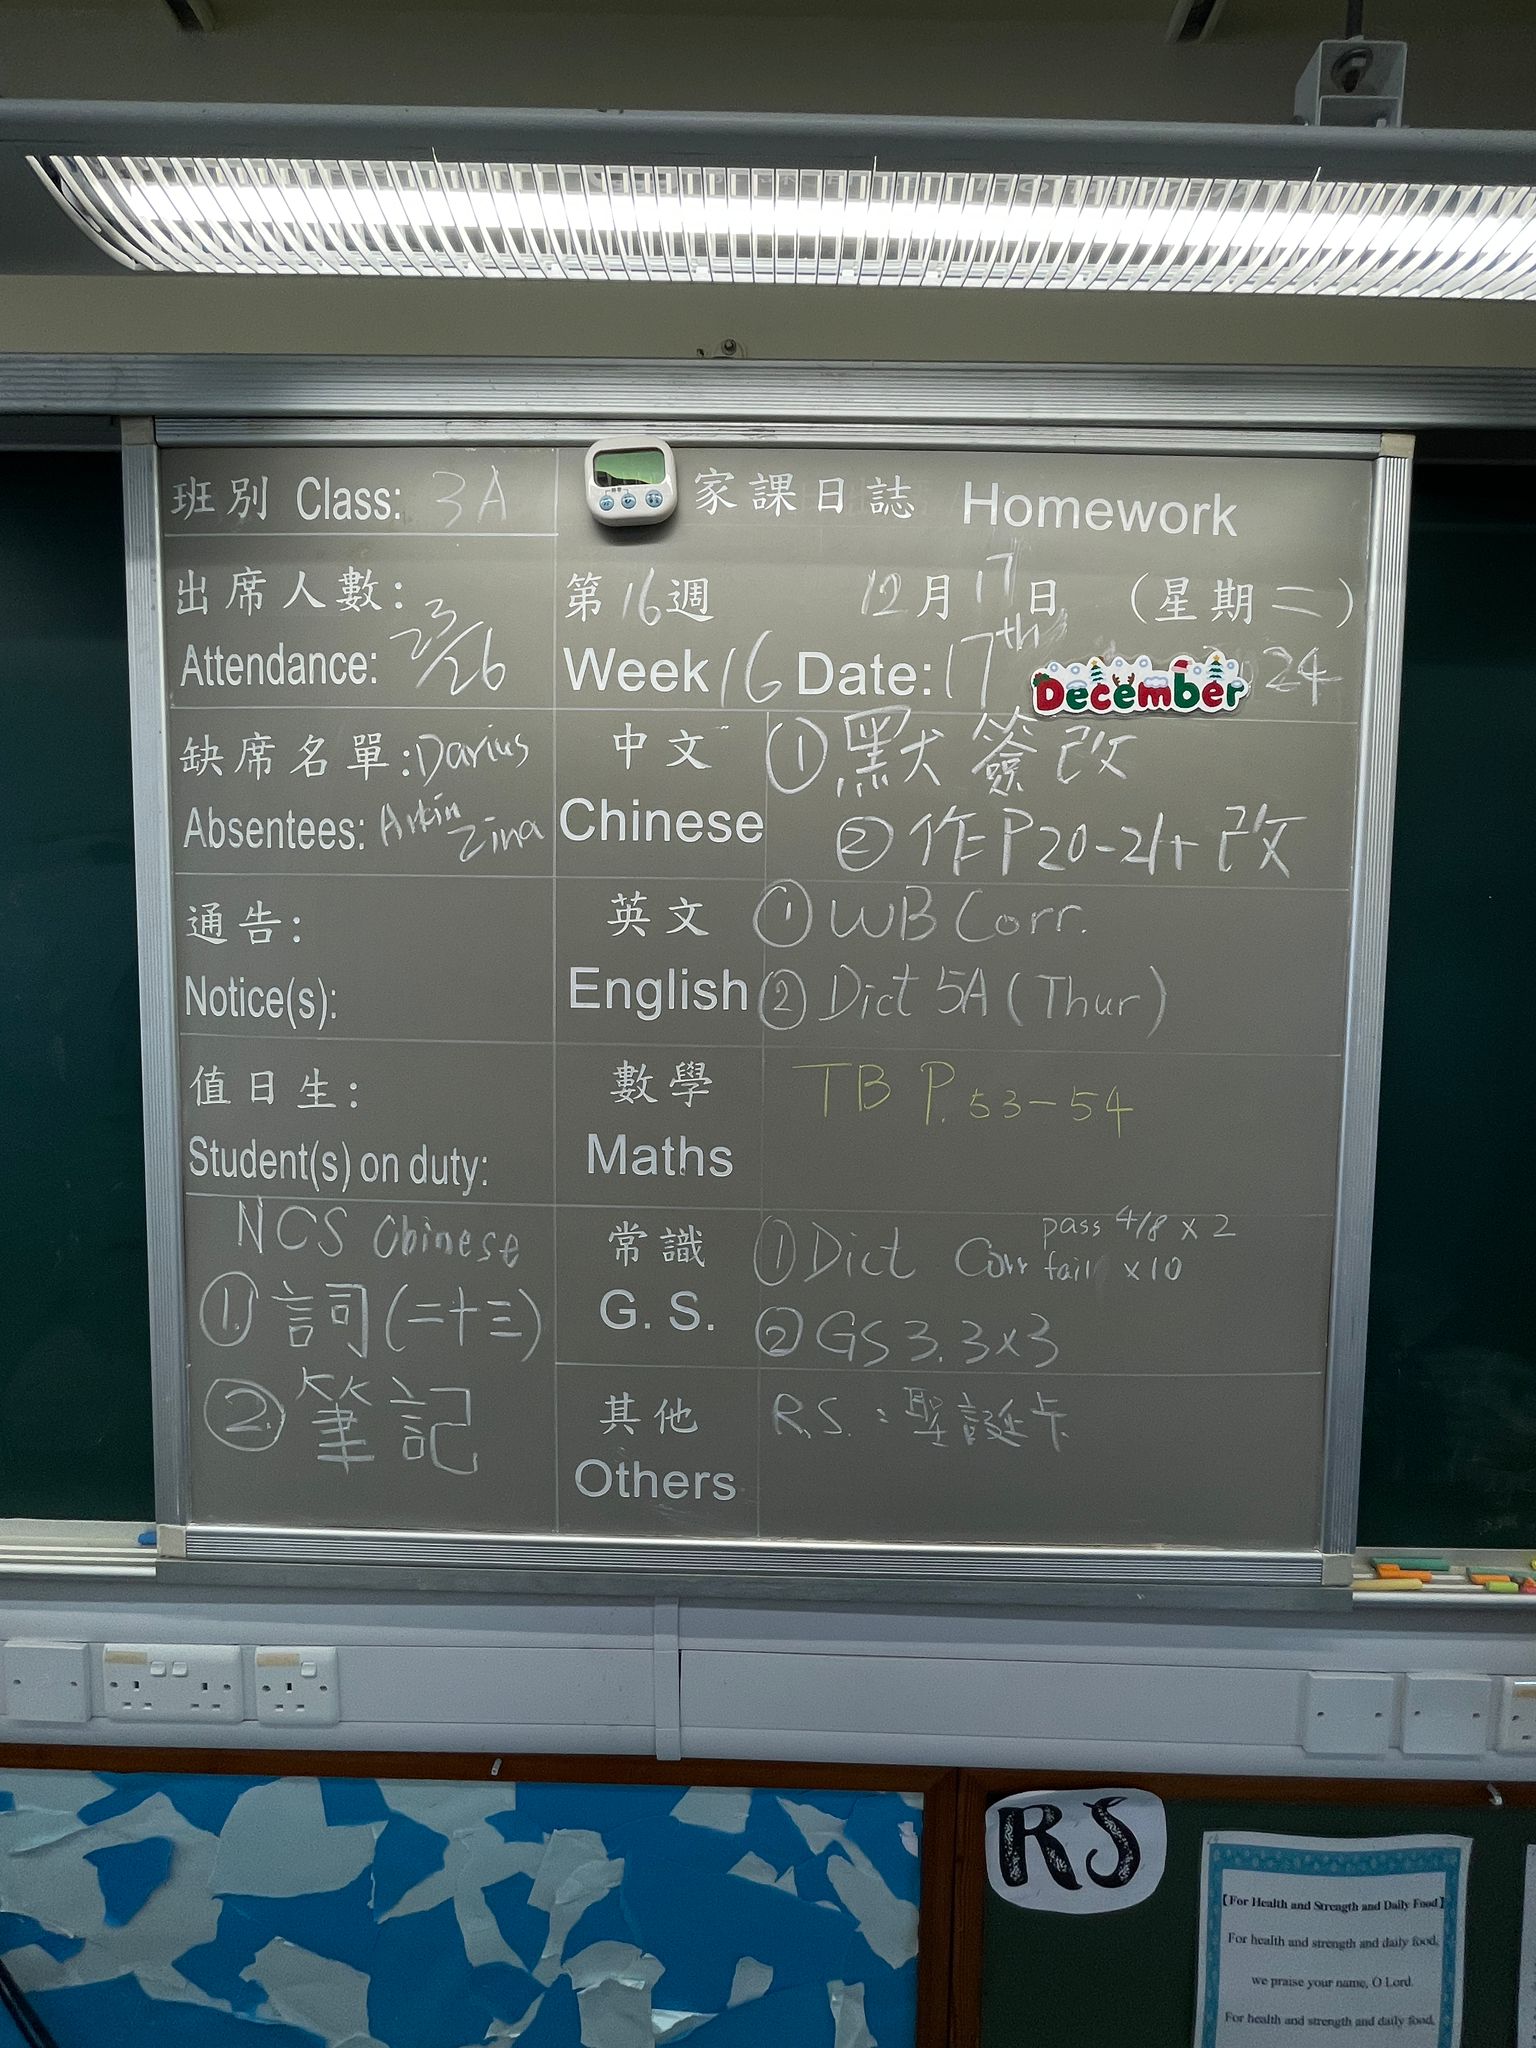 班別 Class: 3A
家課日誌 Homework
出席人數:
Attendance: 23/26
第16週 12月17日 (星期二)
Week 16 Date: 17th December 2024
缺席名單: Darius
Absentees: Arkin Zina
中文
Chinese
①默簽改
②作P20-21+改
通告:
Notice(s):
英文
English
①WB Corr.
②Dict 5A (Thur)
值日生:
Student(s) on duty:
數學
Maths
TB P.53-54
NCS Chinese
①詞(二十三)
②筆記
常識
G. S.
①Dict Corr pass 4/8 x 2
fail x10
②GS 3.3x3
其他
Others
R.S.: 聖誕卡
RS
【For Health and Strength and Daily Food】
For health and strength and daily food,
we praise your name, O Lord.
For health and strength and daily food,